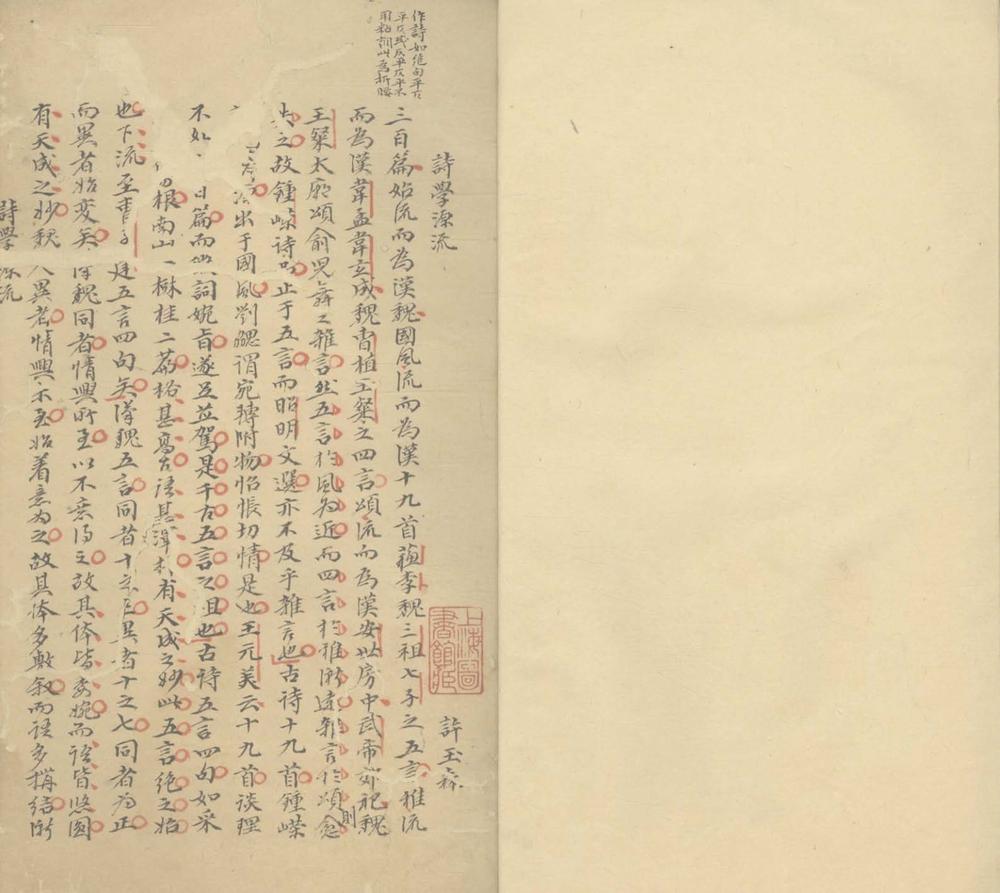 作詩如絕句平仄
詩學源流
許玉森
上海圖書館藏
三百篇始流而為漢魏國風流而為漢十九首蘓李魏三祖七子之五言雅流
而為漢韋孟韋玄成魏曹植王粲之四言頌流而為漢安世房中武帝郊祀魏
王粲太廟頌俞兒舞之雜言然五言於風為近而四言於雅漸遠雜言於頌愈
則
之故鍾嶸詩品止于五言而昭明文選亦不及乎雜言也古詩十九首鍾嶸
出于國風劉勰謂宛轉附物怊悵切情是也王元美云十九首談理
不如 篇而微詞婉旨遂足並駕是千古五言之祖也古詩五言四句如采
根南山一樹桂二篇格甚高古語甚渾 有天成之妙此五言絕之始
也下流至 五言四句矣漢魏五言同者十之 異者十之七同者為正
而異者始變矣 魏同者情興所至以不意得之故其体皆委婉而語皆悠圓
有天成之妙魏人異者情興未至始着意為之故其体多敷叙而語多搆結漸
詩學源流